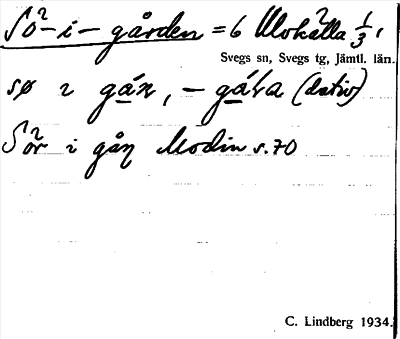 Sö²-i-gården = 6 Ulvkälla 1/3,
Svegs sn, Svegs tg, Jämtl. län.
sø i gán, - gáɽa (dativ)
Sör² i gåṇ Modin s. 70
C. Lindberg 1934.